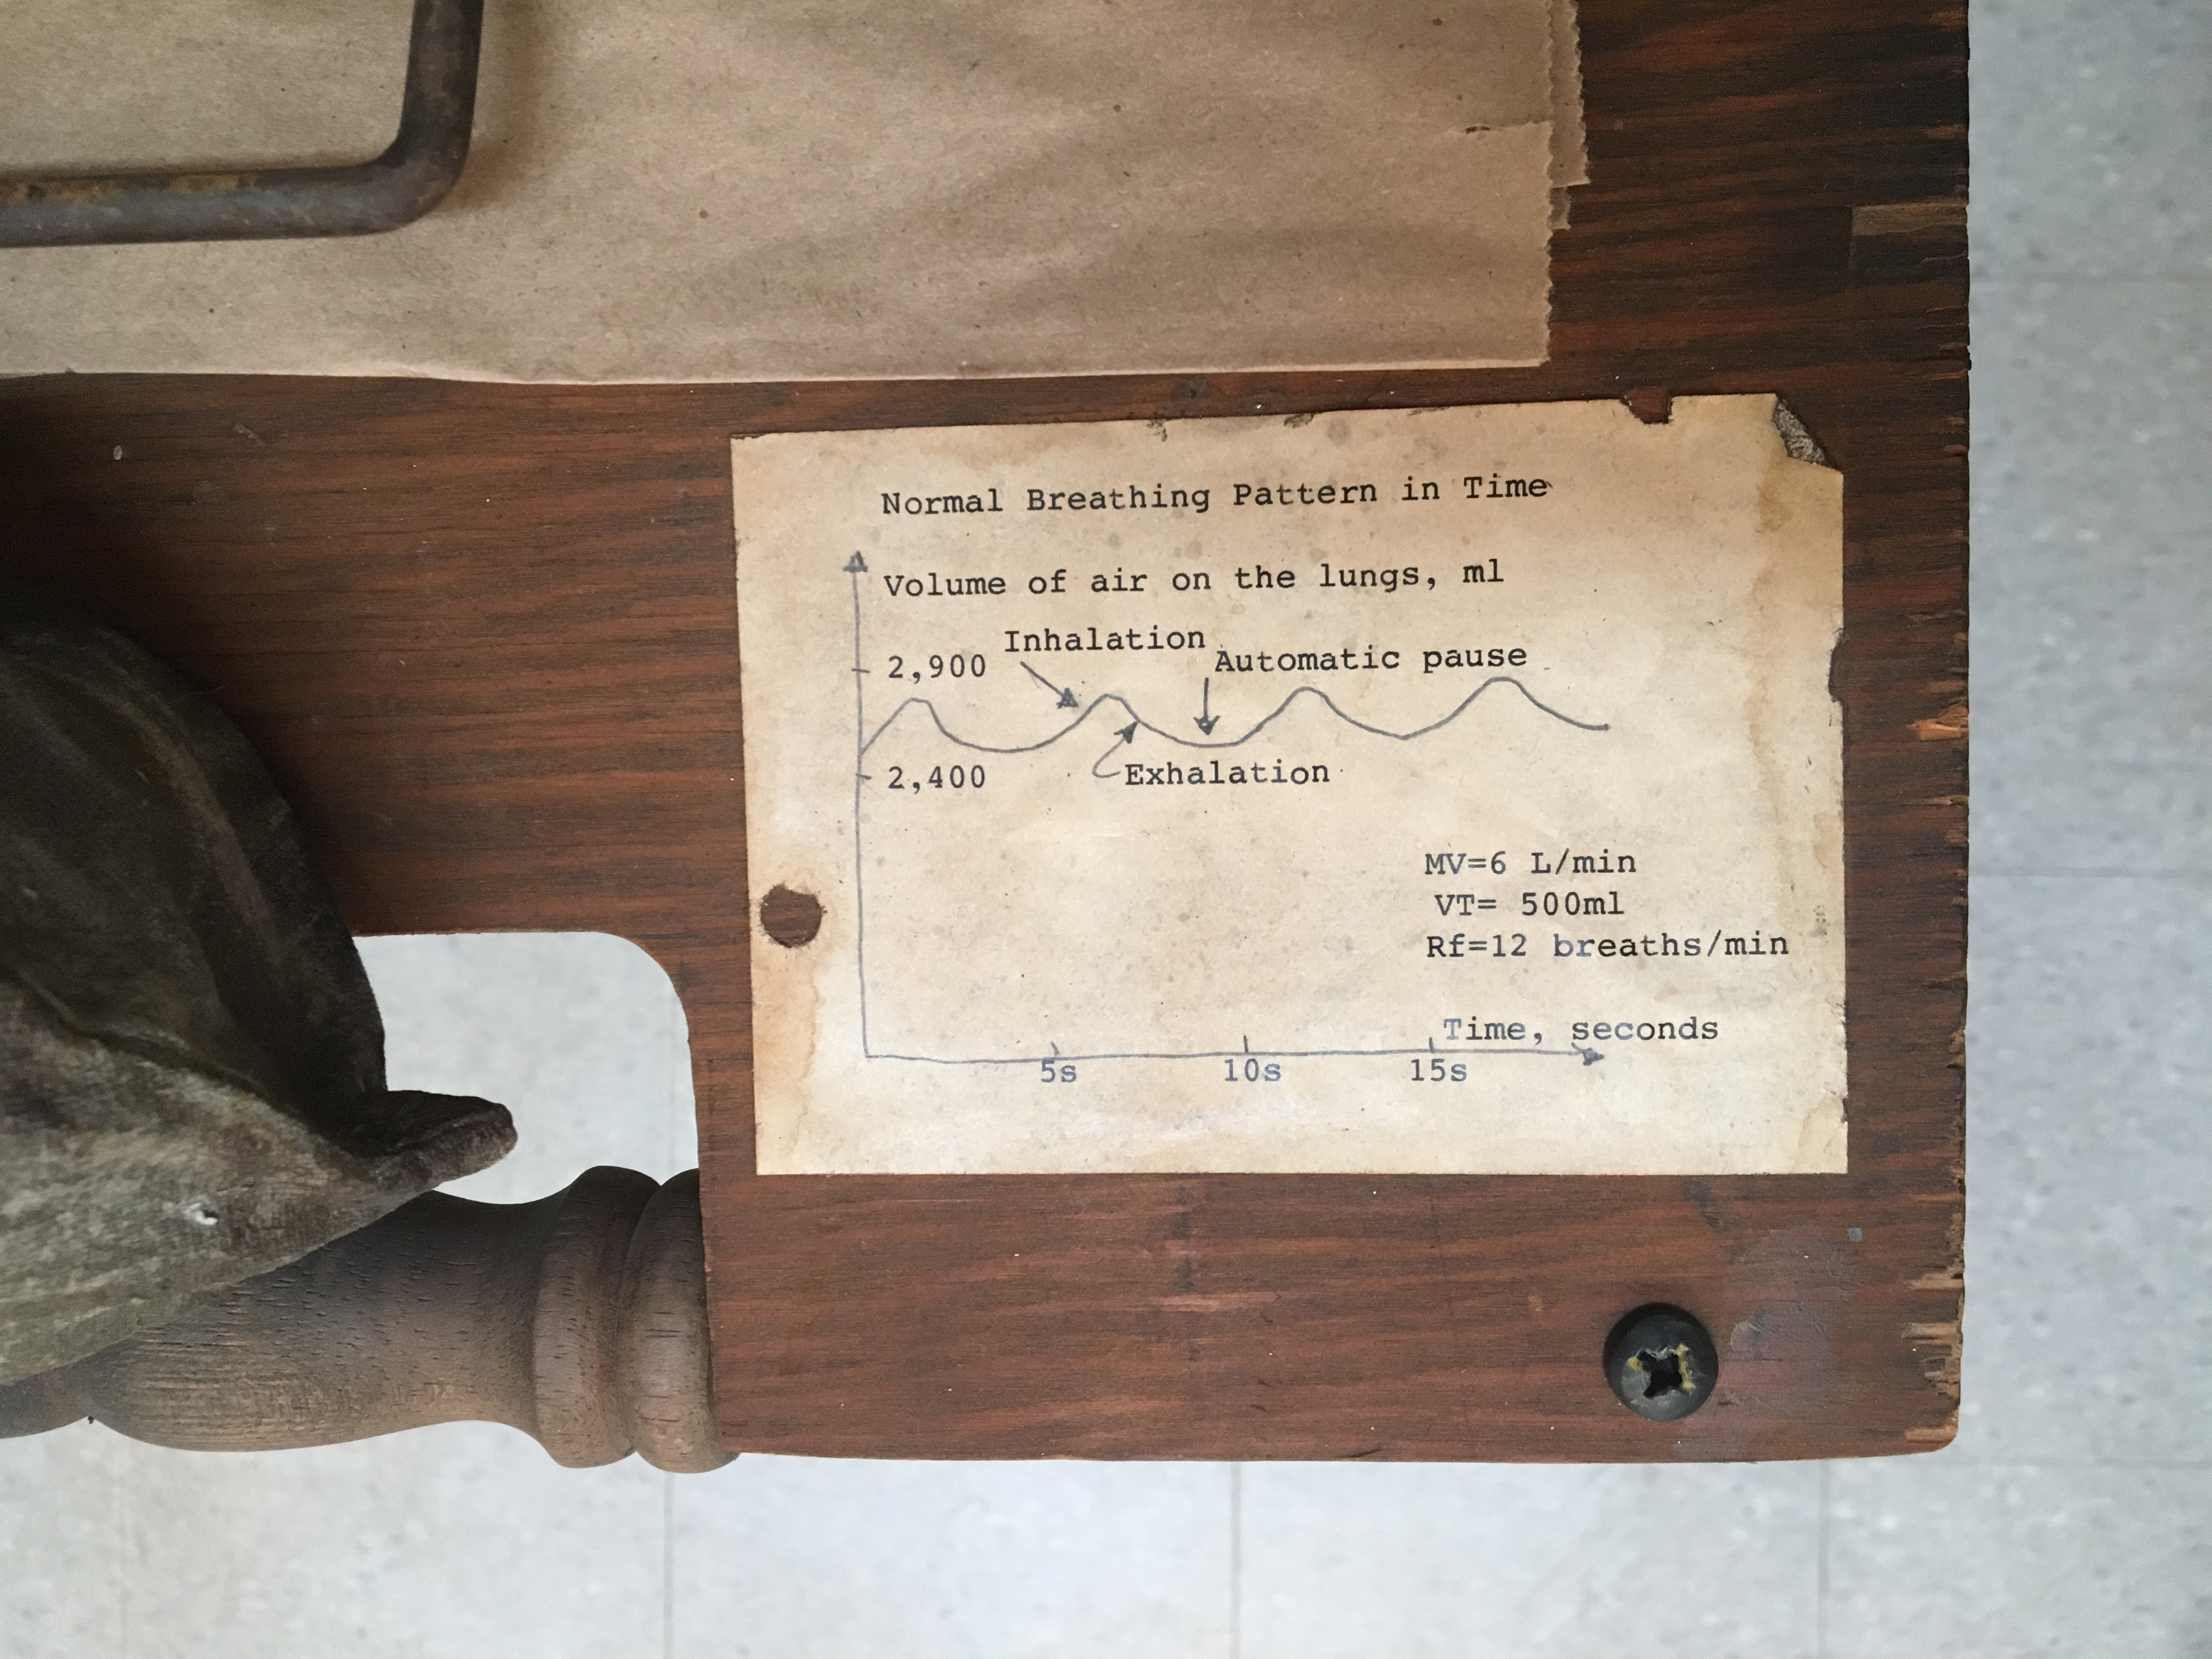 Normal Breathing Pattern in Time
Volume of air on the lungs, ml
Inhalation
2,900
Automatic pause
2,400
Exhalation
MV=6 L/min
VT= 500ml
Rf=12 breaths/min
Time, seconds
5s 10s 15s